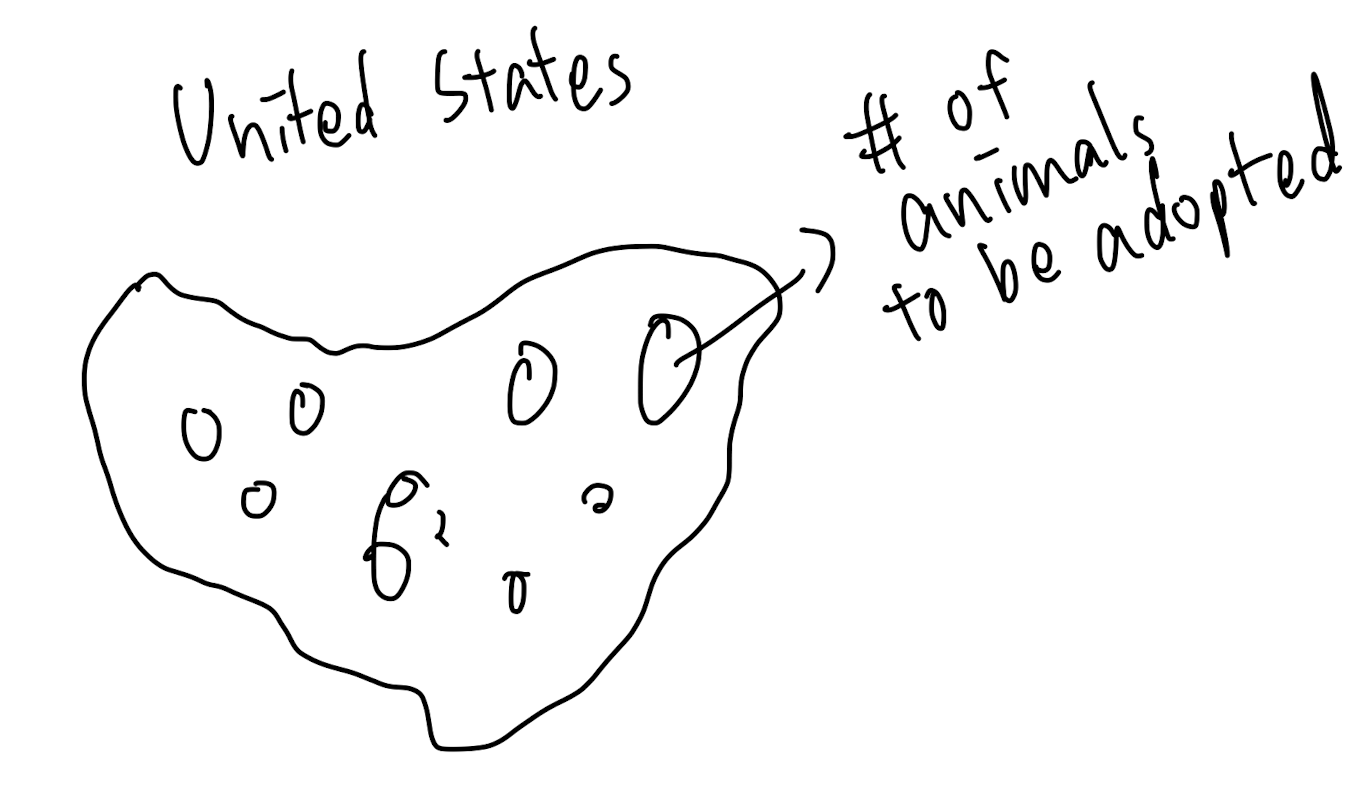 United States
# of
animals
to be adopted